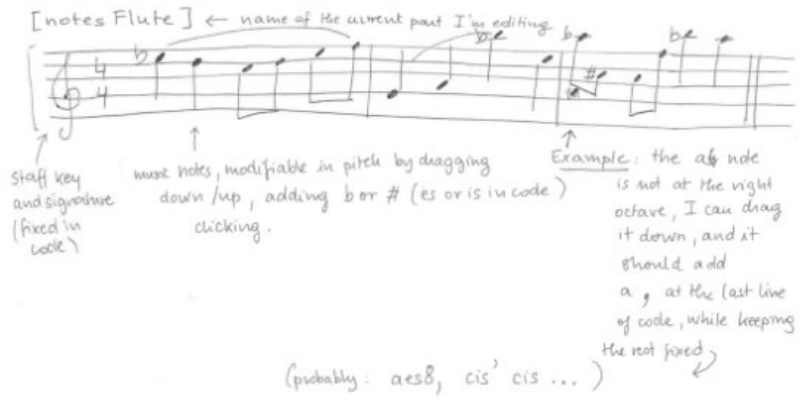 [notes Flute] ← name of the current part I'm editing
b b b b
4
4 #
staff key
and signature
(fixed in
code)
music notes, modifiable in pitch by dragging
down/up, adding b or # (es or is in code)
clicking.
Example: the ab note
is not at the right
octave, I can drag
it down, and it
should add
a , at the last line
of code, while keeping
the rest fixed
(probably: aes8, cis' cis ...)